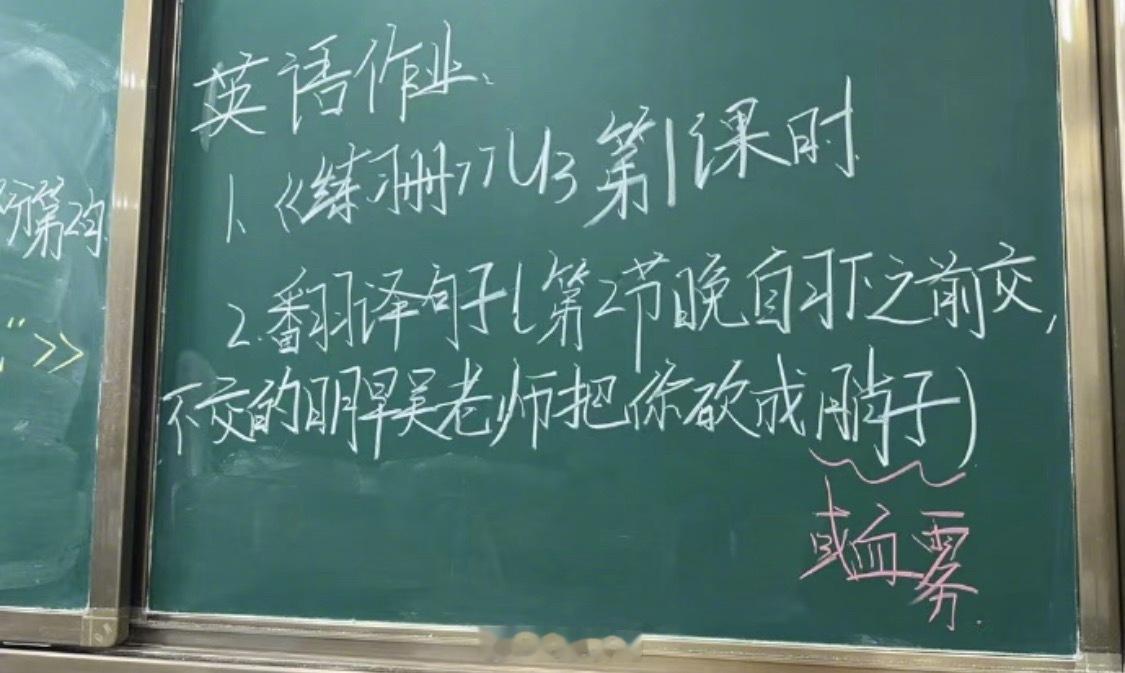 英语作业:
1、《练习册》U3 第1课时
2.翻译句子(第2节晚自习下之前交,
不交的明早吴老师把你砍成臊子)
或血雾.
第2
>>